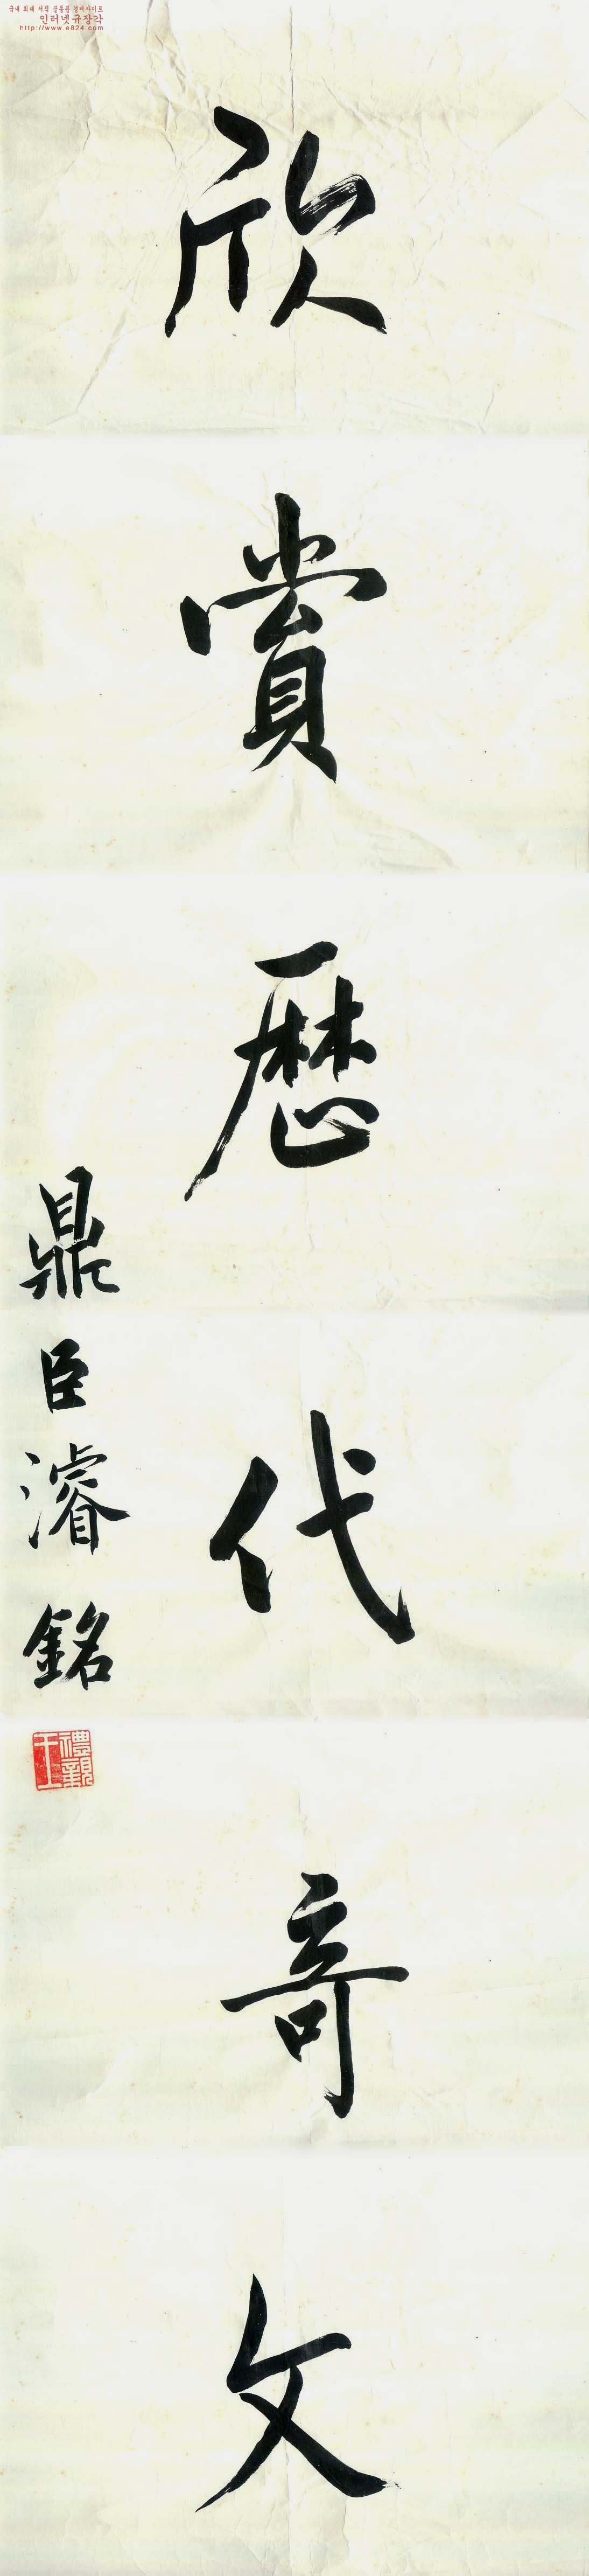 국내 최대 서적 골동품 경매사이트
인터넷규장각
http://www.e824.com
欣賞歷代奇文
鼎臣濬銘
禮親王